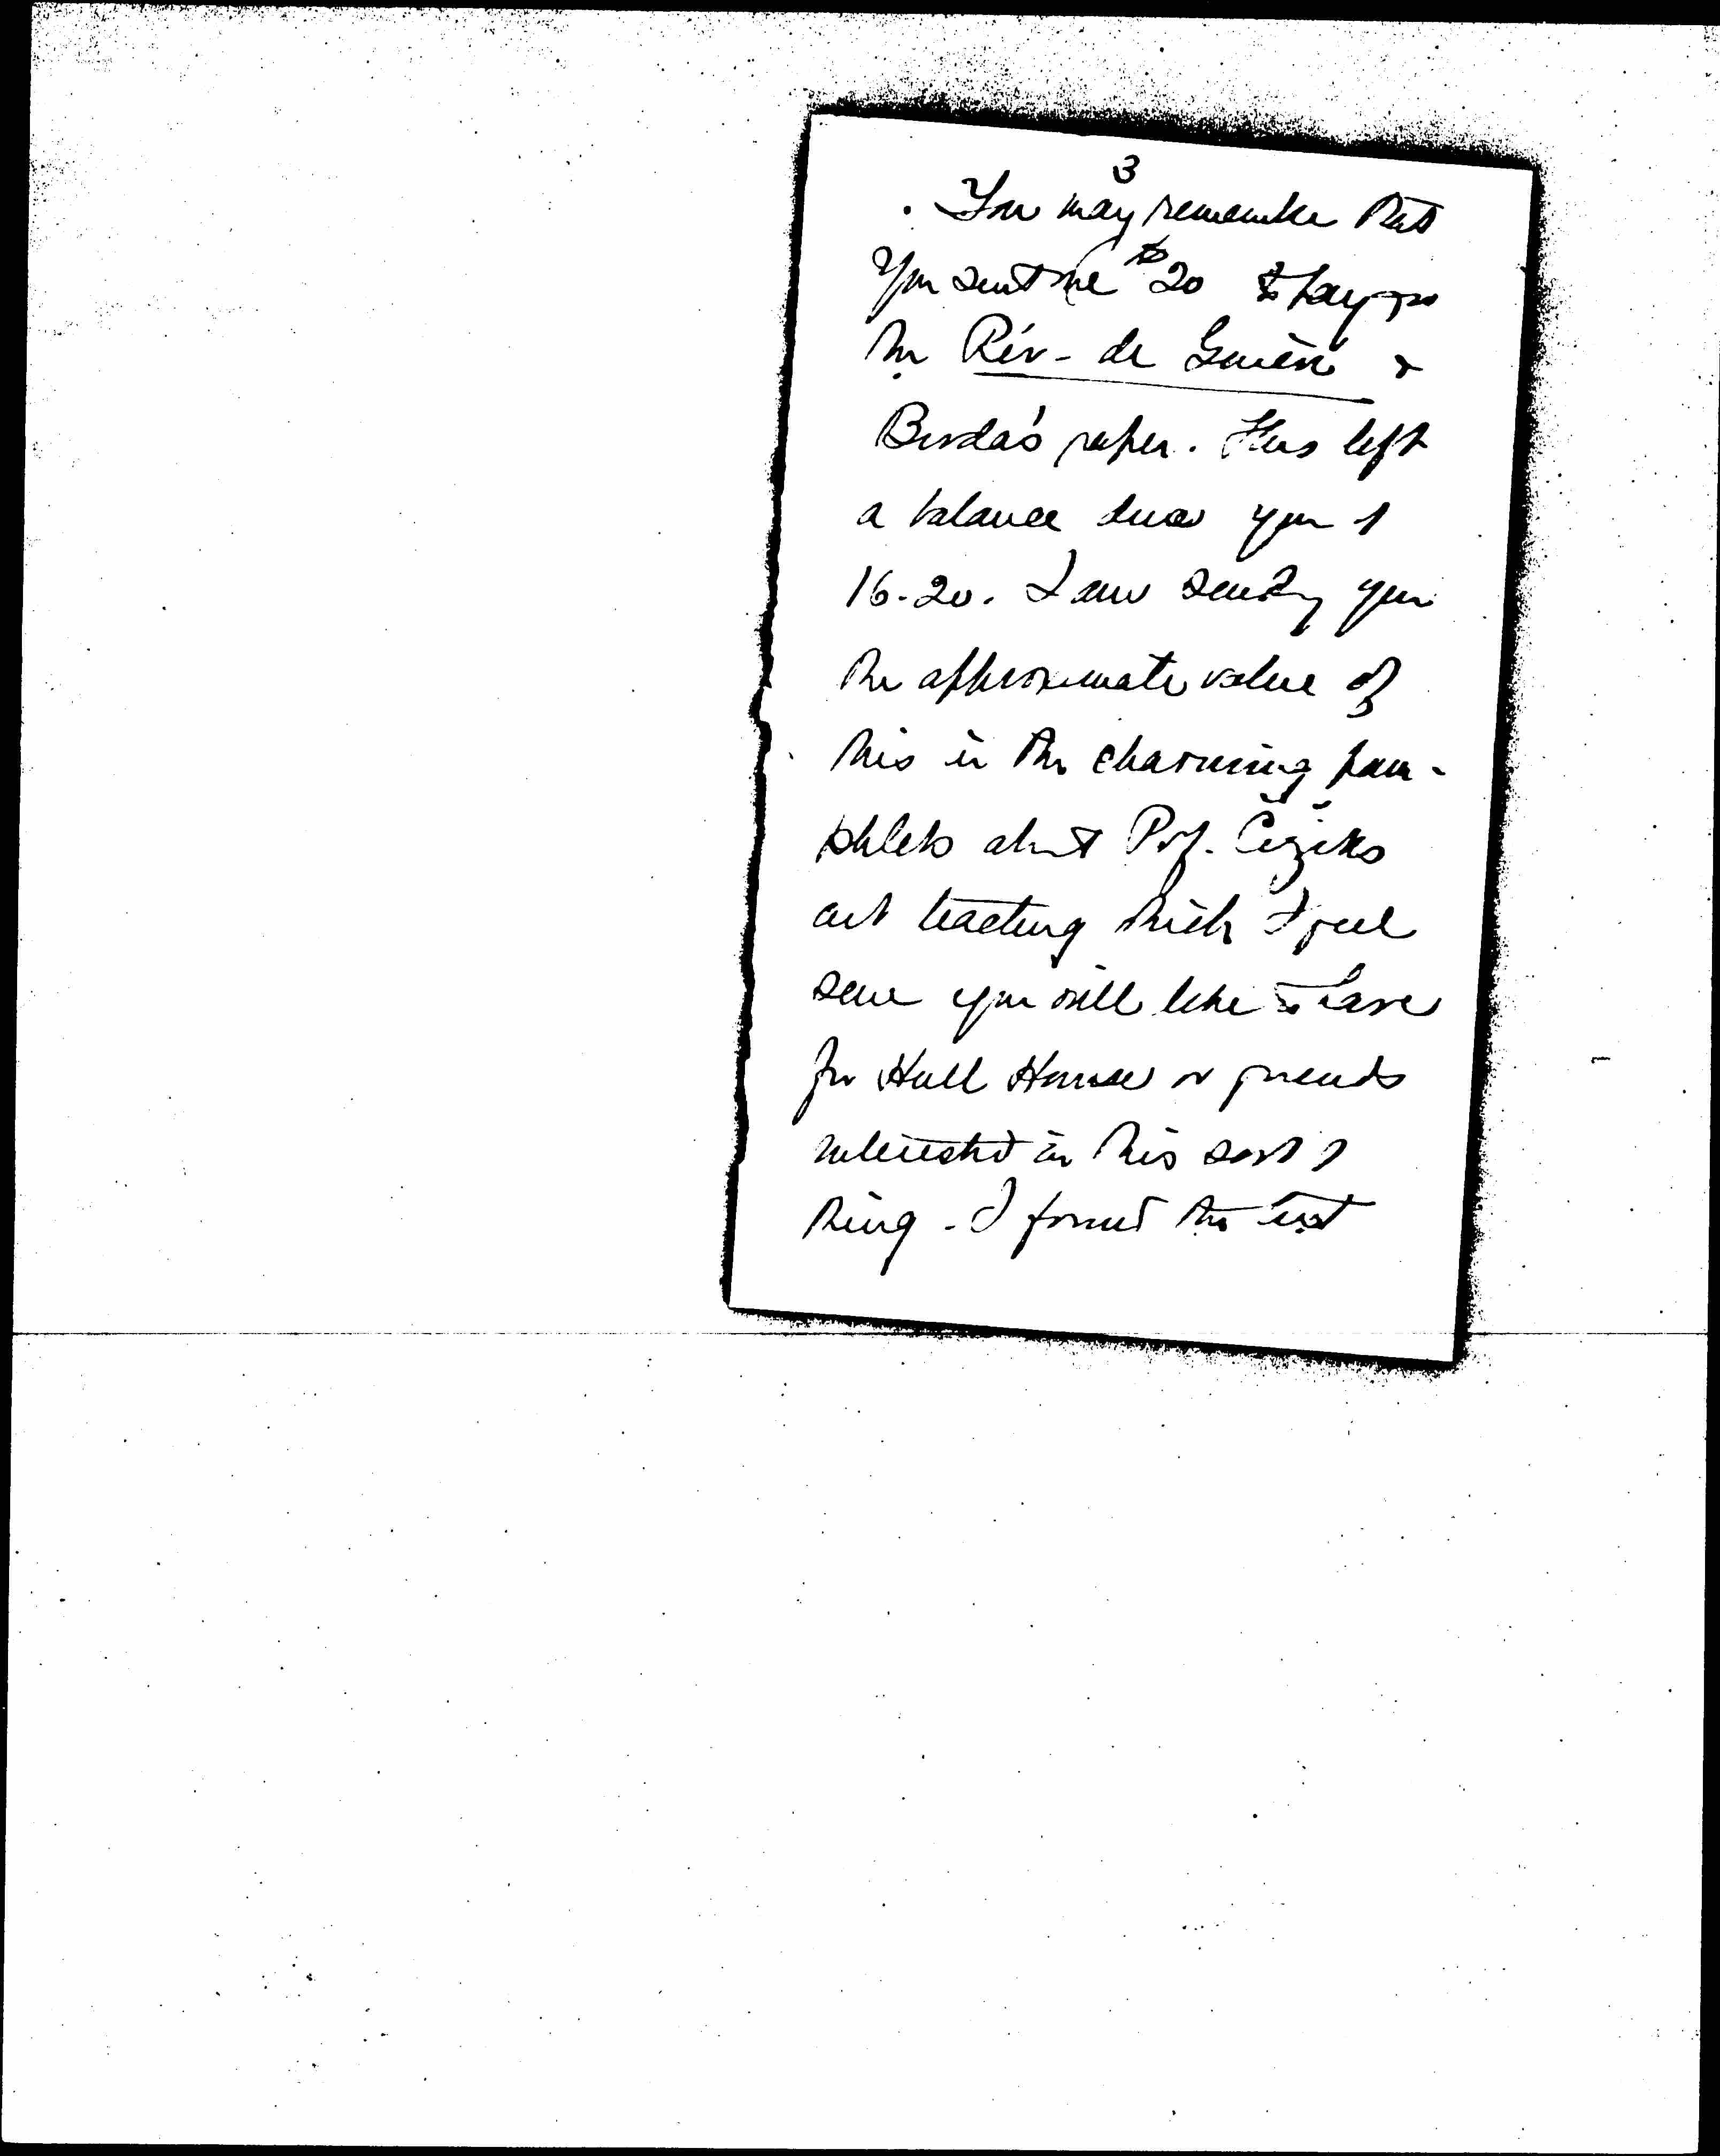 3
You may remember that
you sent me $20 to pay for
the Rév- de Genève &
Birda's paper. This left
a balance due you of
16.20. I am sending you
the approximate value of
this in the charming pam-
phlets about Prof. Čižeks
art teaching which I feel
sure you will like to have
for Hull House or friends
interested in this sort of
thing - I found the last